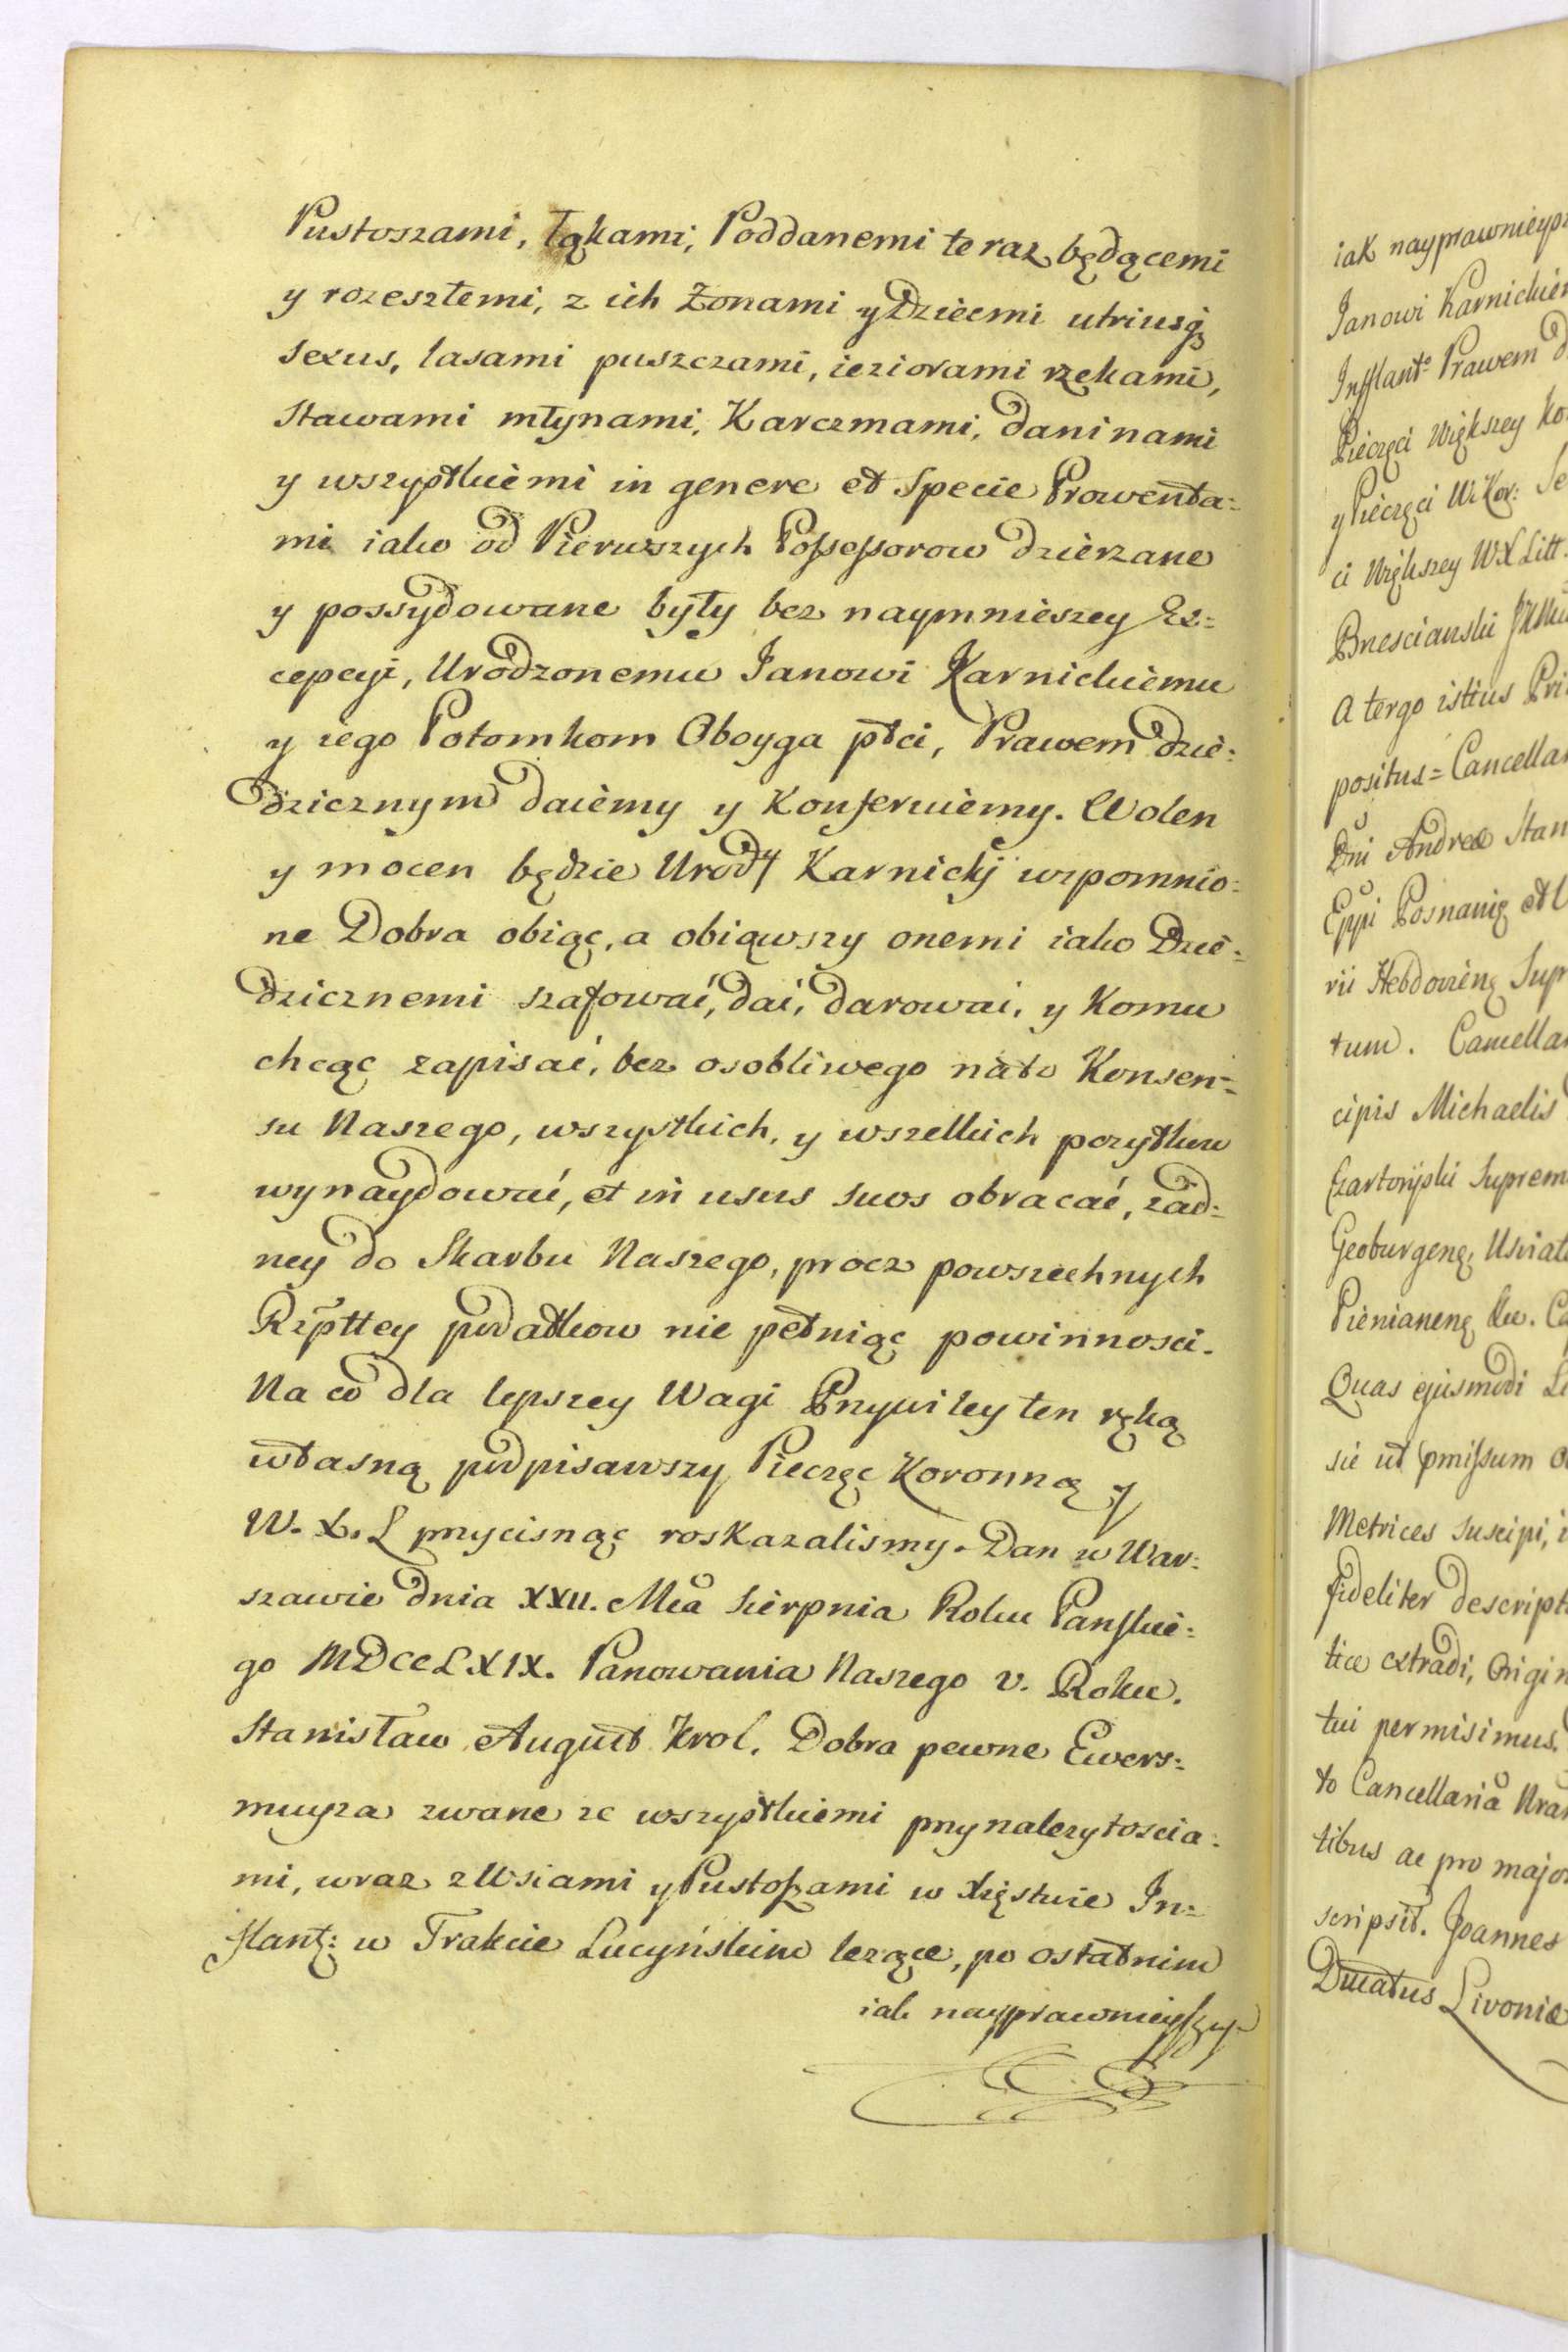 Pustoszami, łąkami, Poddanemi teraz będącemi
y rozeszłemi, z ich Zonami y Dziećmi utriusq;
Sexus, lasami puszczami, ieziorami rzekami,
Stawami młynami, Karczmami, daninami
y wszystkiemi in genere et Specie Prowenta=
mi iako od Pierwszych Possessorow dzierzane
y possydowane były bez naymnieszey Ex=
cepcyi, Urodzonemu Janowi Karnickiemu
y iego Potomkom Oboyga płci, Prawem dzie=
dzicznym daiemy y Konferuiemy. Wolen
y mocen będzie Urody Karnickÿ wzpomnio=
ne Dobra obiąc, a obiąwszy onemi iako Dzie=
dzicznemi szafować, dać, darować, y Komu
chcąc zapisać, bez osobliwego nato Konsen=
su Naszego, wszystkich, y wszelkich pozytkow
wynaydować, et in usus suos obracać, zad=
ney do Skarbu Naszego, procz powszechnych
Rzpttey podatkow nie pełniąc powinnosci.
Na co dla lepszey Wagi Przywiley ten ręką
własną podpisawszy Pieczęc Koronną y
W. X. L przycisnąc roskazalismy. Dan w War=
szawie dnia XXII. Mca Sierpnia Roku Panskie=
go MDCCLXIX. Panowania Naszego V. Roku.
Stanisław August Krol. Dobra pewne Ewers=
muyza zwane ze wszystkiemi przynalezytoscia=
mi, wraz z Wsiami y Pustoszami w Xięstwie In=
flant: w Trakcie Lucyńskim lezące, po ostatnim
iak nayprawnieyszy
iak nayprawnieysz
Janowi Karnickiem
Infflant: Prawem d
Pieczęci Większey Ko
y Pieczęci W. Kor: Se
ci Większey WXLitt.
Brzescianski
A tergo istius Pri
positus = Cancellar
Dni Andreæ Stan
Eppi Posnanię et
rii Hebdovienę Supr
tum. Cancella
cipis Michaelis
Czartorÿski Suprem
Geoburgenę, Usviat
Pienianenę
Quas ejusmodi Li
sic ut pmissum
Metrices suscipi, i
fideliter descript
tice extradi, Origin
tui permisimus.
to Cancellaria Nra
tibus ac pro major
scripsit. Joannes
Ducatus Livoniæ